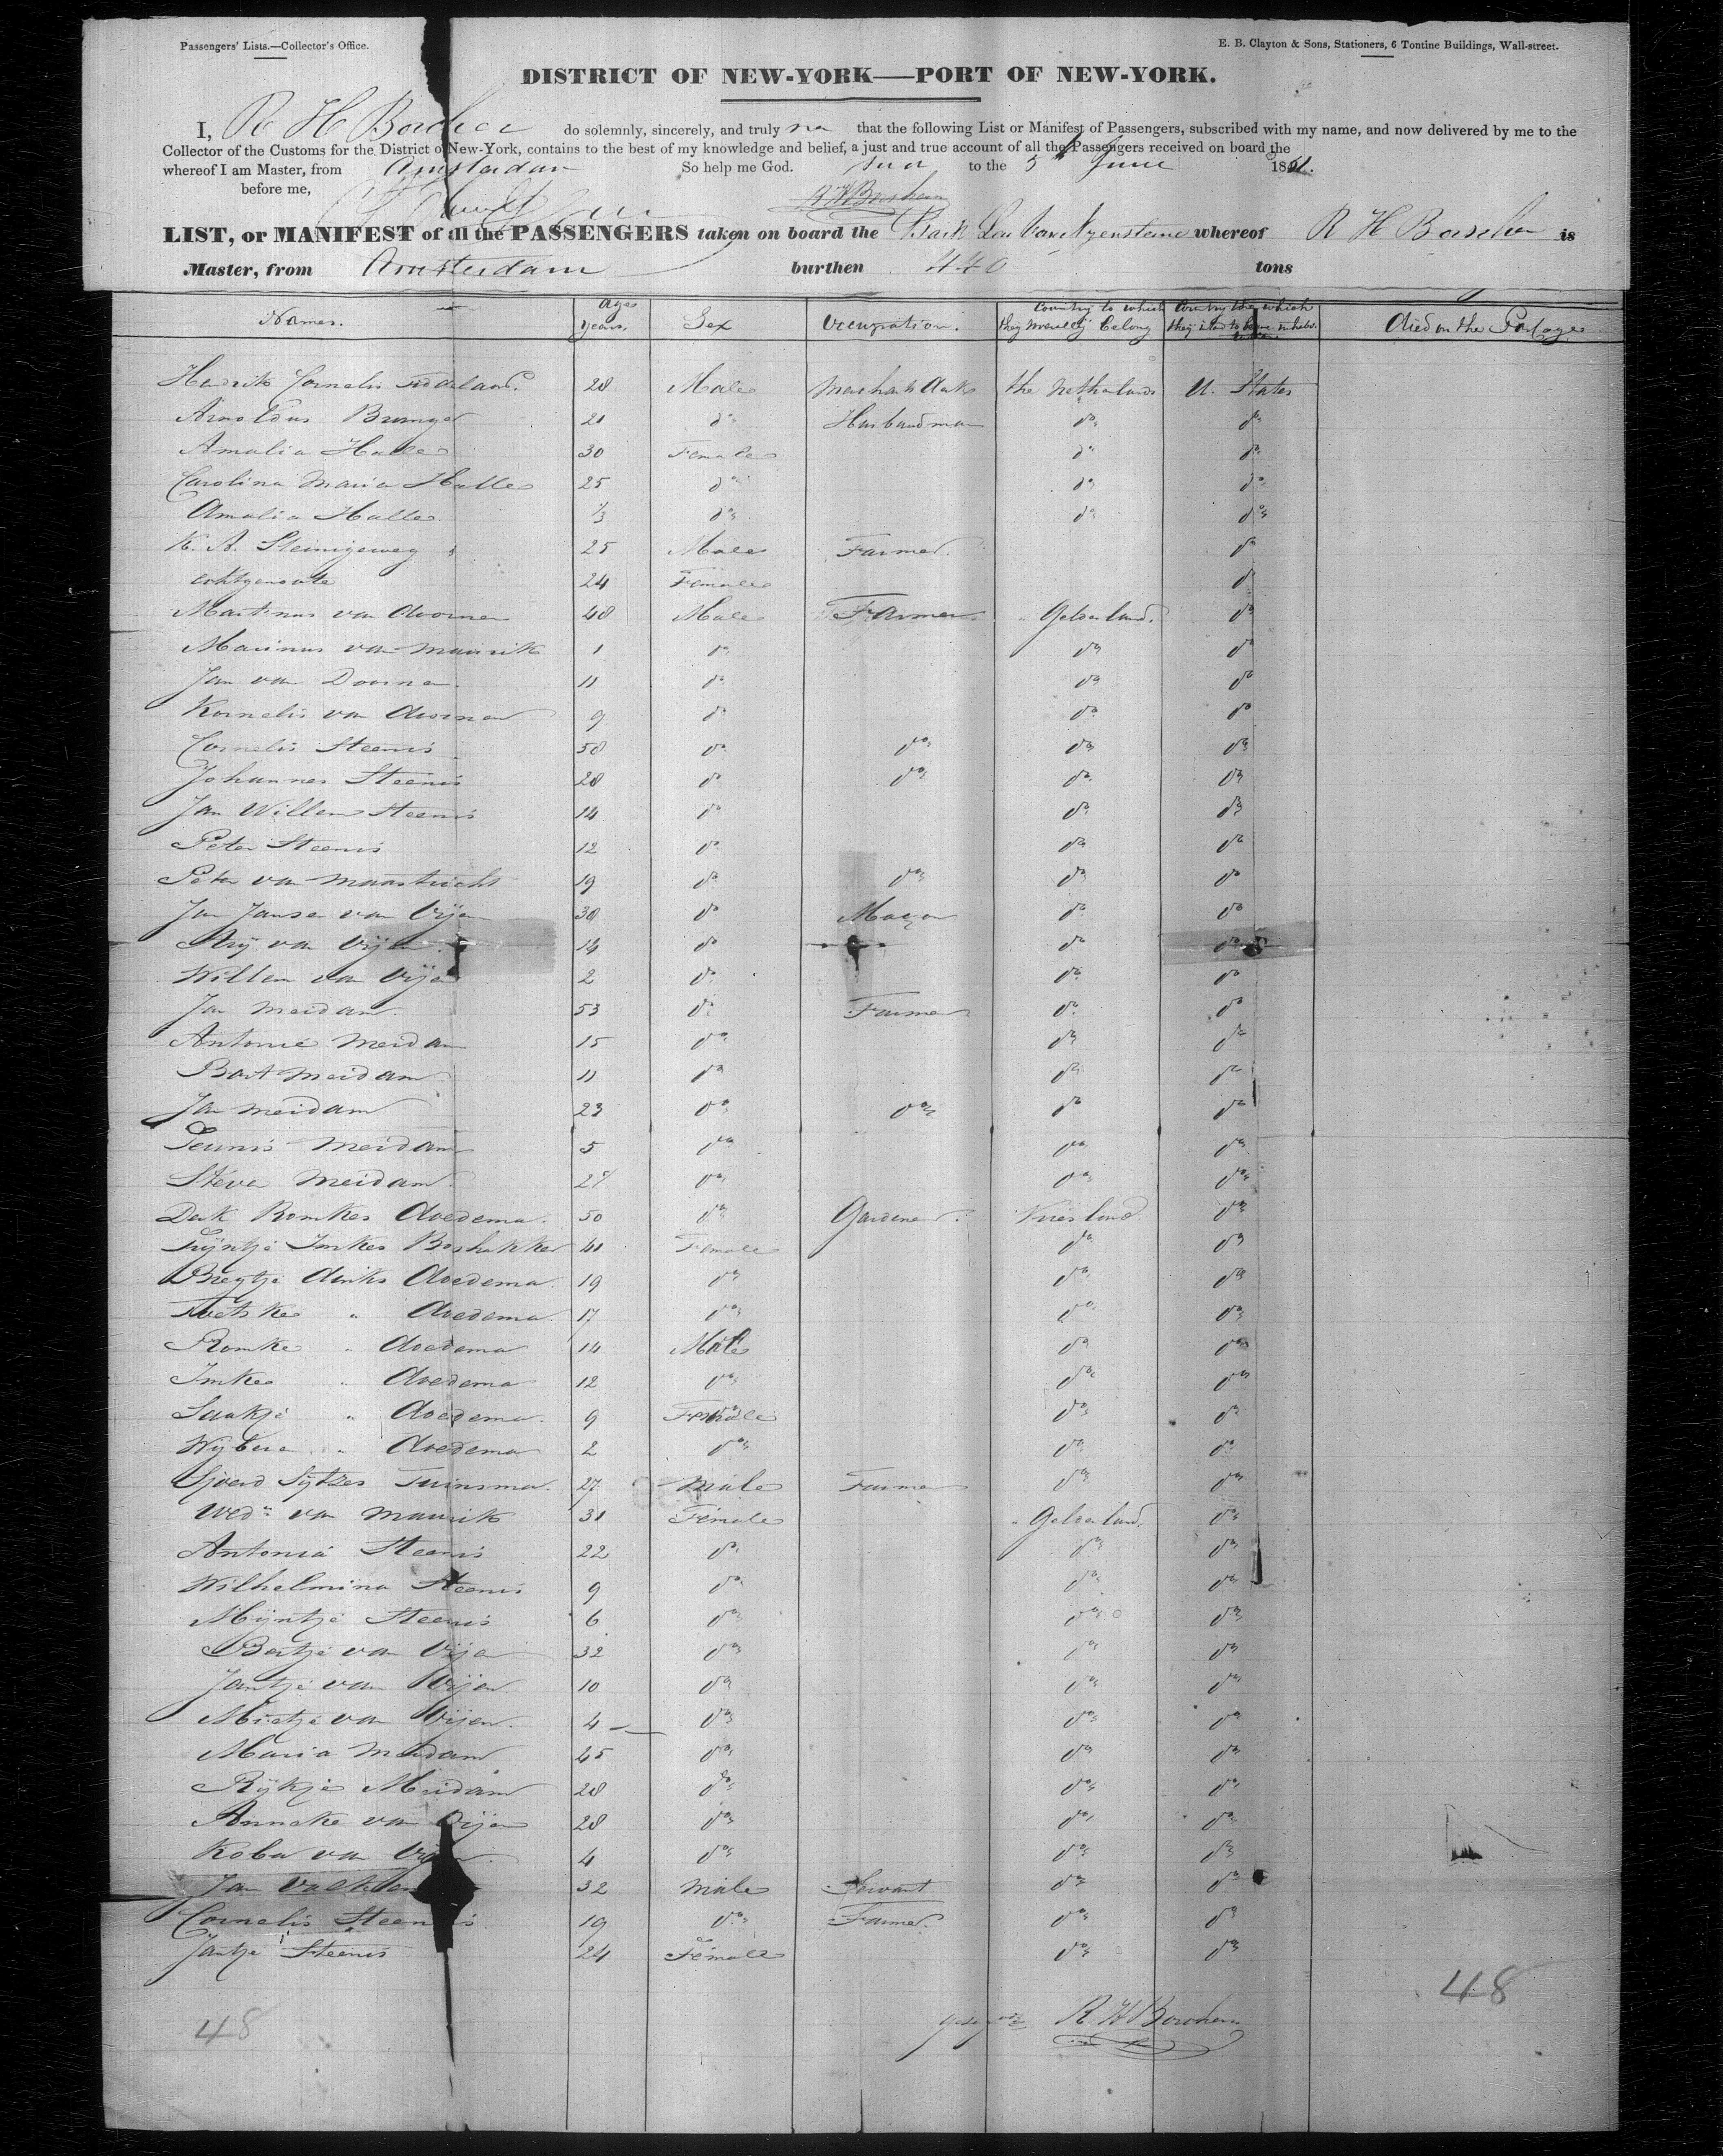 Passengers' Lists.—Collector's Office.
E. B. Clayton & Sons, Stationers, 6 Tontine Buildings, Wall-street.
DISTRICT OF NEW-YORK—PORT OF NEW-YORK.
I, R H do solemnly, sincerely, and truly that the following List or Manifest of Passengers, subscribed with my name, and now delivered by me to the
Collector of the Customs for the District of New-York, contains to the best of my knowledge and belief, a just and true account of all the Passengers received on board the
whereof I am Master, from Amsterdam So help me God. to the 5 June 18
before me,
LIST, or MANIFEST of all the PASSENGERS taken on board the Bark whereof R H is
Master, from Amsterdam burthen 440 tons
Names. Ages years. Sex Occupation. Country to which they severally belong Country to which they intend to Died on the
Hendrik Cornelis 28 Male the Netherlands U. States
Arnoldus 21 do Husbandman do do
Amalia Halle 30 Female do do
Carolina Maria Halle 25 do do do
Amalia Halle 1/3 do do do
K. A. 25 Male Farmer do
echtgenoote 24 Female do
Martinus van Doorne 48 Male Farmer Gelderland. do
Marinus van Maurik 1 do do do
Jan van Doorne 11 do do do
Kornelis van Doorne 9 do do do
Cornelis Steenis 58 do do do do
Johannes Steenis 28 do do do do
Jan Willem Steenis 14 do do do
Peter Steenis 12 do do do
Peter van Maastricht 19 do do do do
Jan Jansen van Vijen 30 do do do
Arij van Vijen 14 do do do
Willem van Vijen 2 do do do
Jan Meidam 53 do Farmer do do
Antonie Meidam 15 do do do
Bart Meidam 11 do do do
Jan Meidam 23 do do do do
Teunis Meidam 5 do do do
Meidam do do do
Romkes Doedema. 50 do Gardener. Vriesland do
Trijntje Imkes 41 Female do do
Doedema. 19 do do do
" Doedema 17 do do do
Romke " Doedema 14 Male do do
Imke " Doedema 12 do do do
" Doedema. 9 Female do do
" Doedema 2 do do do
Sjoerd Sytzes Tuinsma. 27 Male Farmer do do
Wede van Maurik 31 Female Gelderland. do
Antonia Steenis 22 do do do
Wilhelmina Steenis 9 do do do
Mijntje Steenis 6 do do do
Bertje van Vijen 32 do do do
Jantje van Vijen 10 do do do
Mietje van Vijen. 4 do do do
Maria Meidam 45 do do do
Rijkje Meidam 28 do do do
Anneke van Vijen 28 do do do
Koba van Vijen 4 do do do
Jan 32 Male Servant do do
Cornelis Steenis 19 do Farmer. do do
Jantje Steenis 24 Female do do
48
48
R H